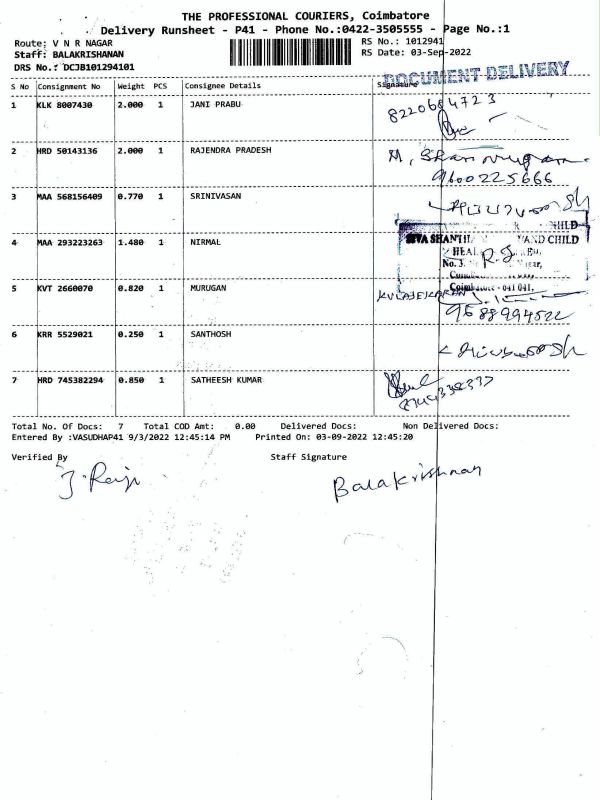 THE PROFESSIONAL COURIERS, Coimbatore
Delivery Runsheet - P41 - Phone No.:0422-3505555 - Page No.:1
Route: V N R NAGAR RS No.: 1012941
Staff: BALAKRISHANAN RS Date: 03-Sep-2022
DRS No.: DCJB101294101
DOCUMENT DELIVERY
S No Consignment No Weight PCS Consignee Details Signature
1 KLK 8007430 2.000 1 JANI PRABU
2 HRD 50143136 2.000 1 RAJENDRA PRADESH
9600225666
3 MAA 568156409 0.770 1 SRINIVASAN
4 MAA 293223263 1.480 1 NIRMAL
AND CHILD
No. 3.
5 KVT 2660070 0.820 1 MURUGAN
Coimbatore - 641 041.
KULASEKARAN
9688994522
6 KRR 5529021 0.250 1 SANTHOSH
7 HRD 745382294 0.850 1 SATHEESH KUMAR
Total No. Of Docs: 7 Total COD Amt: 0.00 Delivered Docs: Non Delivered Docs:
Entered By :VASUDHAP41 9/3/2022 12:45:14 PM Printed On: 03-09-2022 12:45:20
Verified By Staff Signature
Balakrishnan